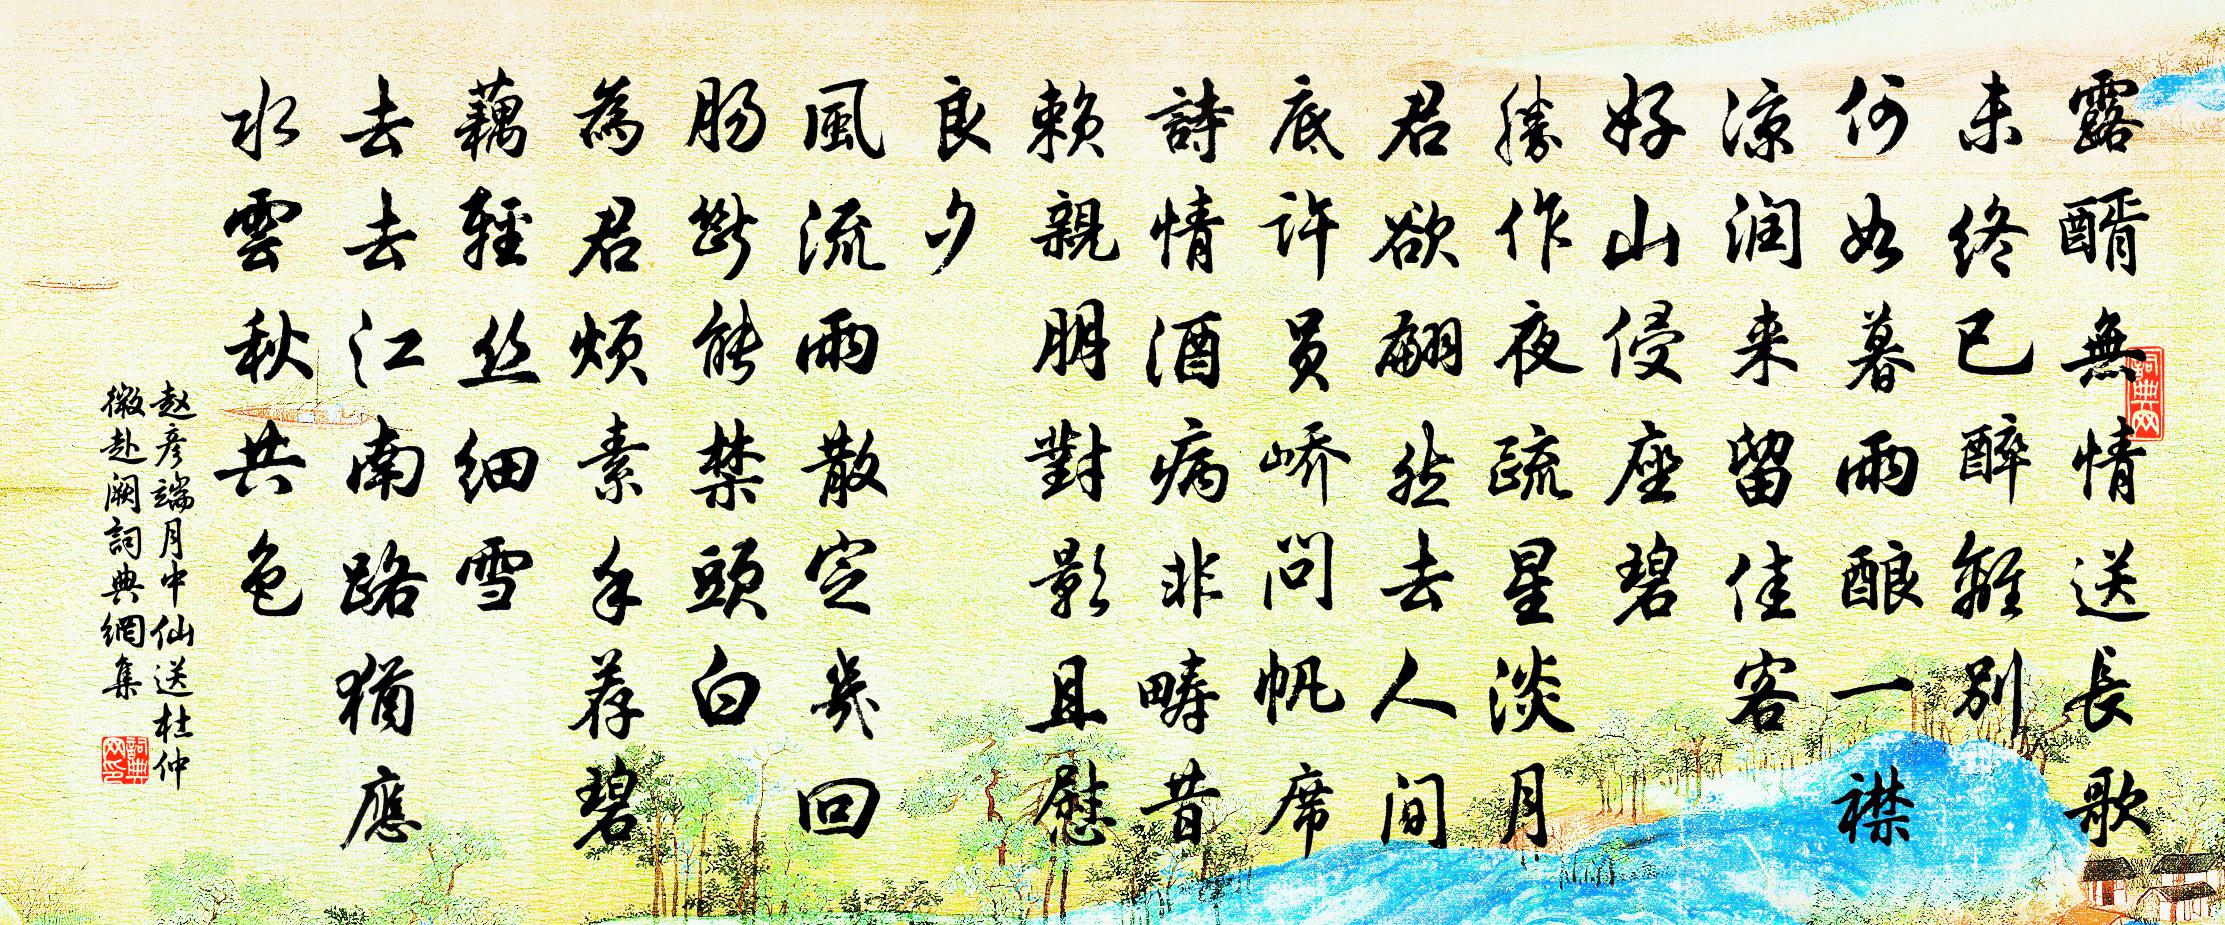 露醑無情送長歌
未終已醉離別
何如暮雨一酿襟
凉润来留佳客
好山侵座碧
勝作夜疏星淡月
君欲翩然去人间
底许员峤问帆席
詩情酒病非畴昔
赖親朋對影且慰
良夕
風流雨散定幾回
肠斷能禁頭白
為君煩素手荐碧
藕輕丝细雪
去去江南路猶應
水雲秋共色
赵彦端月中仙送杜仲
微赴阙詞典網集
詞典网
詞典网印